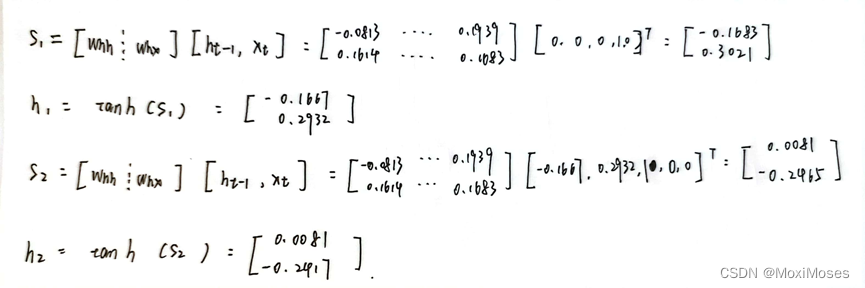 S₁ = [Whh ⋮ Whx] [ht-1, xt] = [-0.0813 .... 0.1939; 0.1614 .... 0.1083] [0, 0, 0, 1, 0]ᵀ = [-0.1683; 0.3021]
h₁ = tanh (S₁) = [-0.1667; 0.2932]
S₂ = [Whh ⋮ Whx] [ht-1, xt] = [-0.0813 ... 0.1939; 0.1614 ... 0.1683] [-0.1667, 0.2932, 1, 0, 0]ᵀ = [0.0081; -0.2465]
h₂ = tanh (S₂) = [0.0081; -0.2417].
CSDN @MoxiMoses